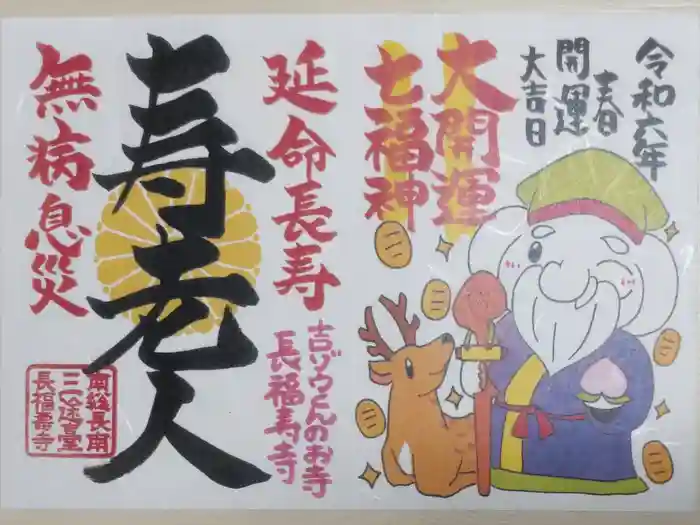 令和六年
春
開運
大吉日
大開運
七福神
延命長寿
吉ゾウくんのお寺
長福寿寺
寿老人
無病息災
南総長南
三途台
長福壽寺